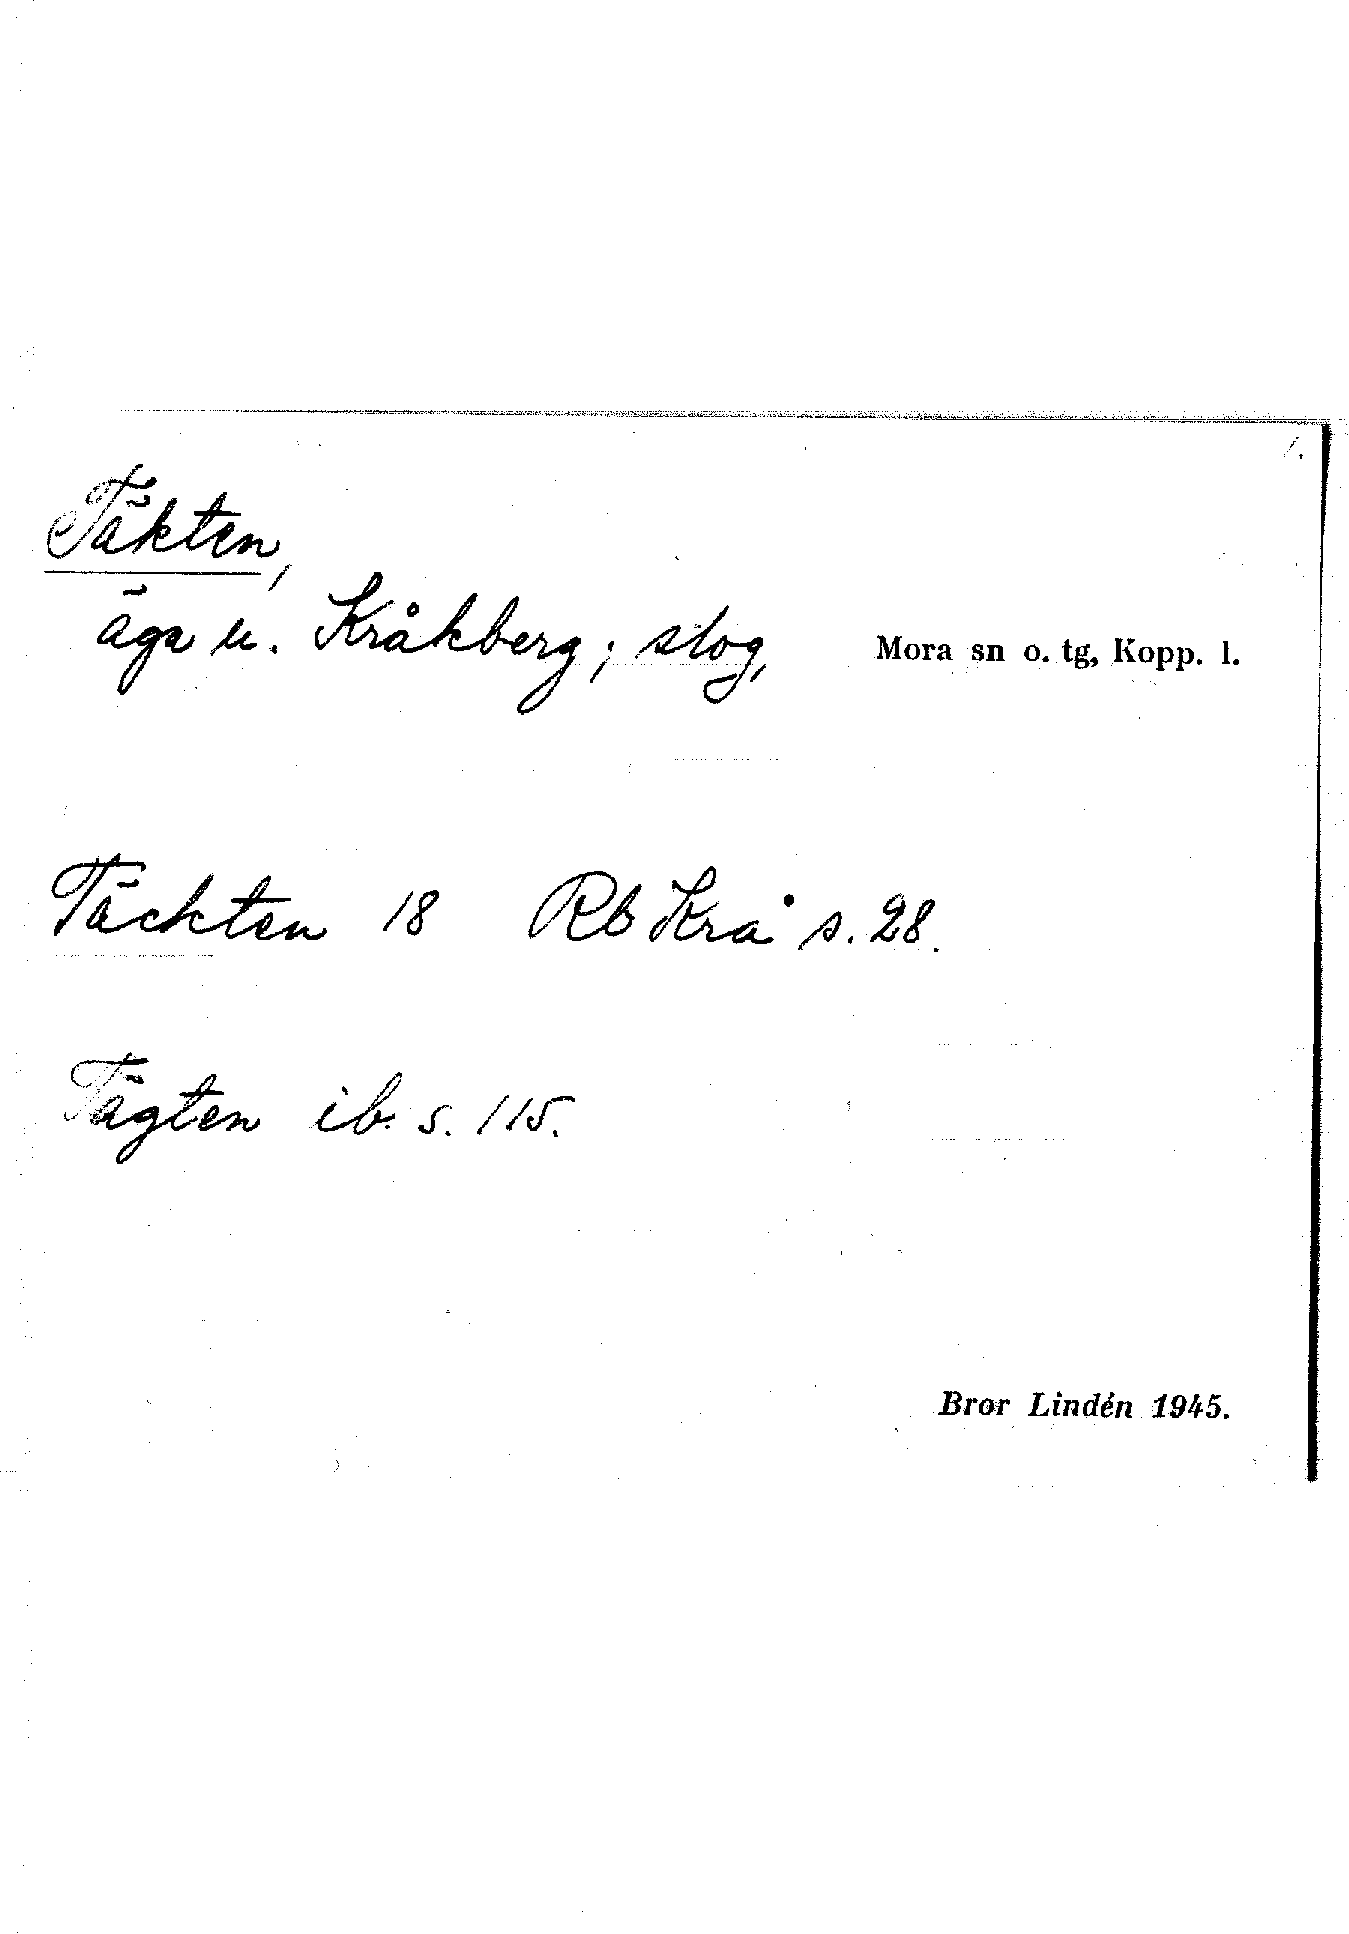 1.
Täkten,
äga u. Kråkberg; slog, Mora sn o. tg, Kopp. l.
Täckten 18 Rb Krå s. 28.
Tägten ib. s. 115.
Bror Lindén 1945.